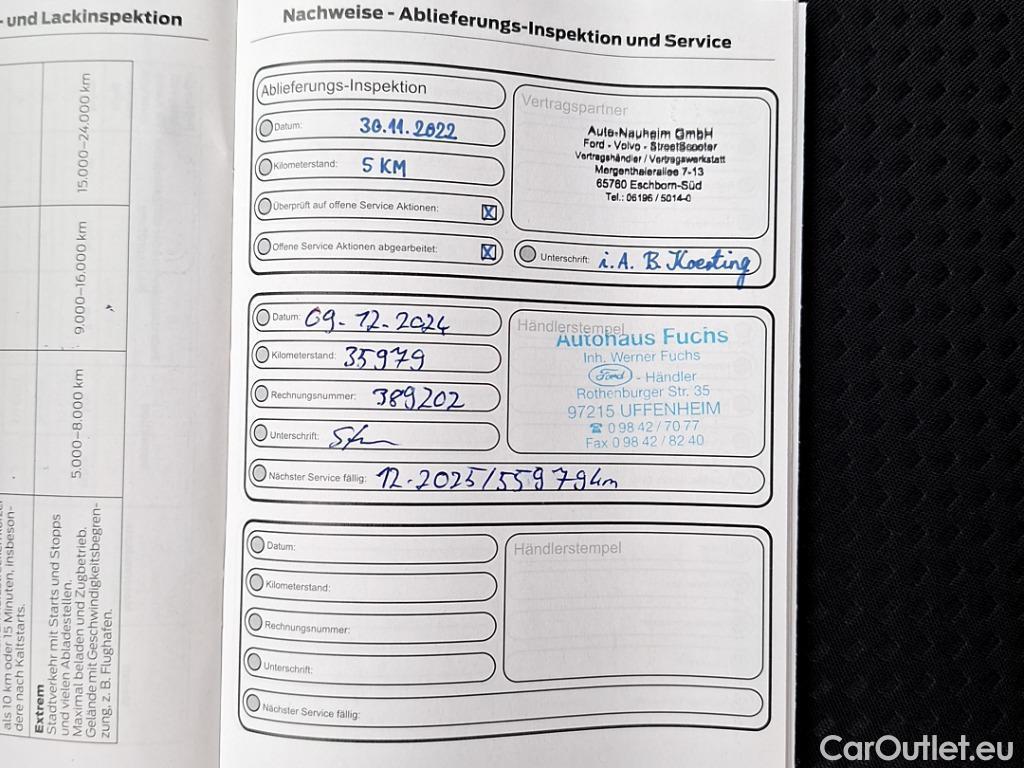 - und Lackinspektion
15.000–24.000 km
9.000–16.000 km
5.000–8.000 km
als 10 km oder 15 Minuten, insbeson-
dere nach Kaltstarts.
Extrem
Stadtverkehr mit Starts und Stopps
und vielen Abladestellen.
Maximal beladen und Zugbetrieb.
Gelände mit Geschwindigkeitsbegren-
zung, z. B. Flughafen.
Nachweise - Ablieferungs-Inspektion und Service
Ablieferungs-Inspektion
Datum: 30.11.2022
Kilometerstand: 5 KM
Überprüft auf offene Service Aktionen: X
Offene Service Aktionen abgearbeitet: X
Vertragspartner
Auto-Nauheim GmbH
Ford - Volvo - StreetScooter
Vertragshändler / Vertragswerkstatt
Mergenthalerallee 7-13
65760 Eschborn-Süd
Tel.: 06196 / 5014-0
Unterschrift: i.A. B. Koesting
Datum: 09.12.2024
Kilometerstand: 35979
Rechnungsnummer: 389202
Unterschrift:
Nächster Service fällig: 12.2025/55979km
Händlerstempel
Autohaus Fuchs
Inh. Werner Fuchs
Ford - Händler
Rothenburger Str. 35
97215 UFFENHEIM
☎ 0 98 42 / 70 77
Fax 0 98 42 / 82 40
Datum:
Kilometerstand:
Rechnungsnummer:
Unterschrift:
Nächster Service fällig:
Händlerstempel
CarOutlet.eu